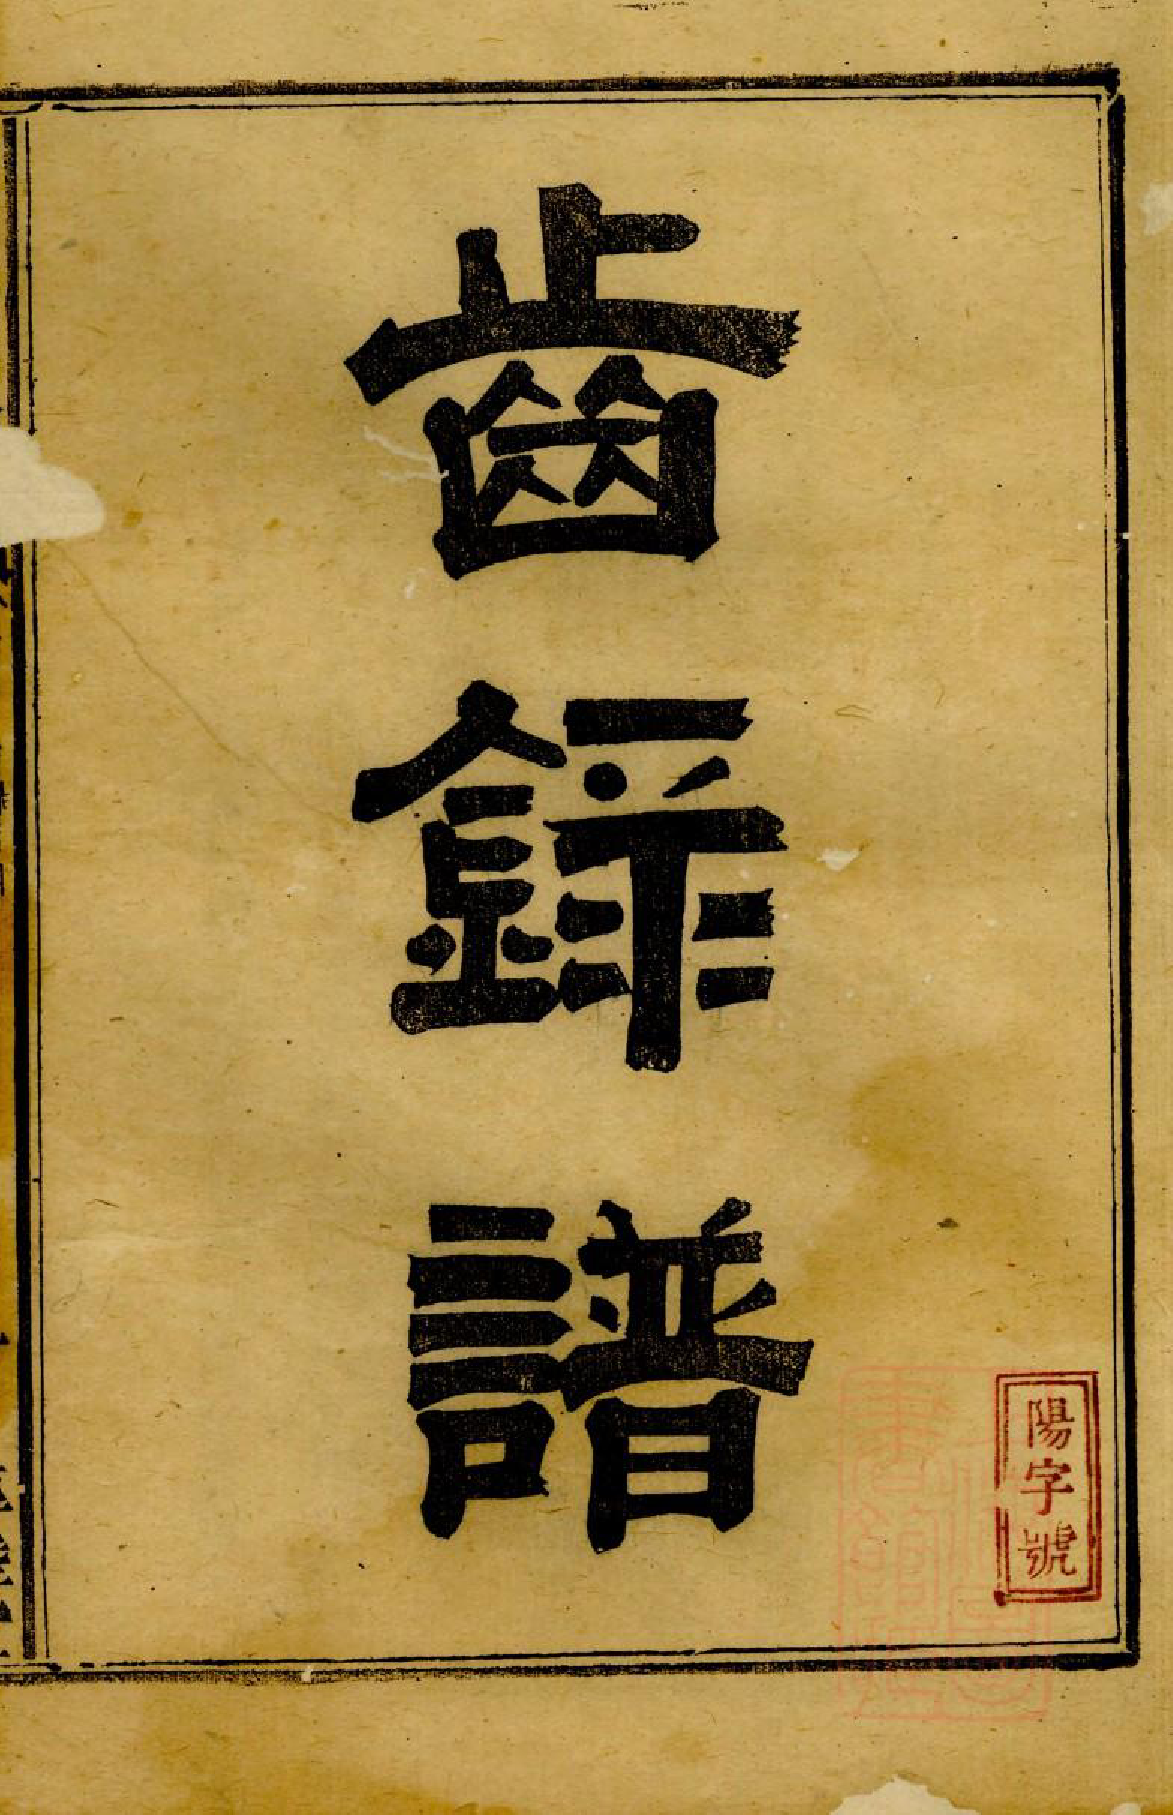 齒錄譜
陽字號